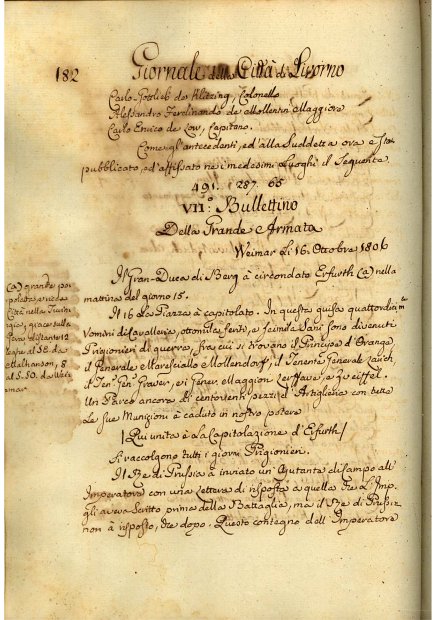 182
Giornale della Città di Livorno
Carlo Gottlieb de Klitzing, Colonello
Alessandro Ferdinando de Mollentin Maggiore
Carlo Enrico de Low, Capitano.
Come gl'antecedenti, ed'alla Suddetta ora e Sta
pubblicato, ed'affissato ne i medesimi Luoghi il Seguente
491. 1287. 65
VII.º Bullettino
Della Grande Armata
Weimar Li 16. Ottobre 1806
Il Gran-Duca di Berg à circondato Erfurth (a) nella
mattina del giorno 15.
Il 16 la Piazza à capitolato. In questa guisa quattordici
Uomini di Cavalleria, ottomila feriti, e Seimila Sani Sono divenuti
Prigionieri di guerra, fra cui si trovano il Principe d'Orange,
il Generale Maresciallo Mollendorf, il Tenente Generale
Il Ten. Gen. Graver, ei Gener. Maggiori e Zveiffel.
Un Parco ancora di centoventi pezzi d'Artiglieria con tutte
Le Sue Munizioni à caduto in nostro potere
/Qui unita è la Capitolazione d'Erfurth/
Si raccolgono tutti i giorni Prigionieri.
Il Re di Prussia à inviato un Ajutante di Campo all'
Imperatore con una Lettera di risposta a quella che L'Imp.
gli aveva Scritto prima della Battaglia, ma il Re di Prussia
non à risposto, che dopo. Questo contegno dell'Imperatore
(a) grande, po-
polatta, e ricca
Città nella Turin-
gia, giace sulla
Gera distante 12
leghe al SE. da
Malhausen, 8
al S. SO. da Wei-
mar